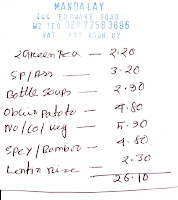 MANDALAY
444 EDGWARE ROAD
W2 1EG 02072583696
VAT 4538 02
2Green tea — 2.20
SP/Ass — 3.20
Bottle soups — 2.90
patato — 4.80
No/Co/veg — 5.90
Spcy/Bamboo — 4.80
rice — 2.30
26.10